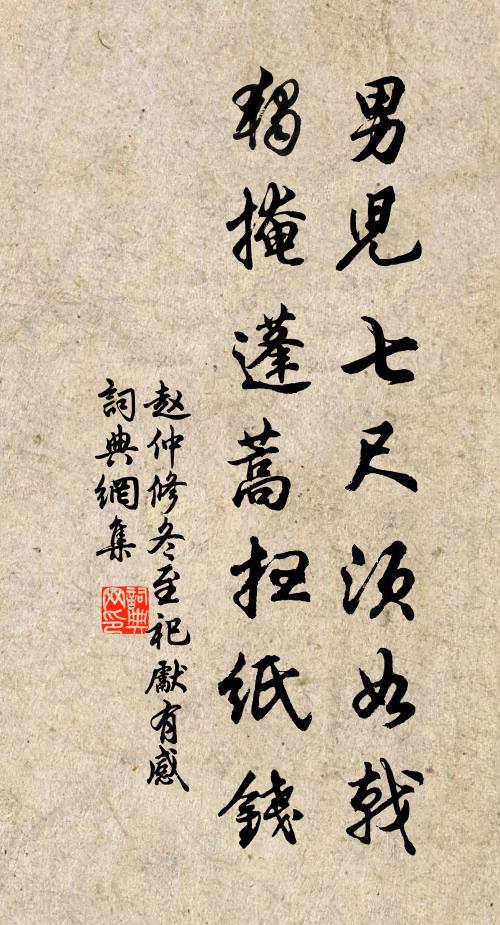 男兒七尺須如戟
獨掩蓬蒿扫紙錢
赵仲修冬至祀獻有感
詞典網集
詞典网印